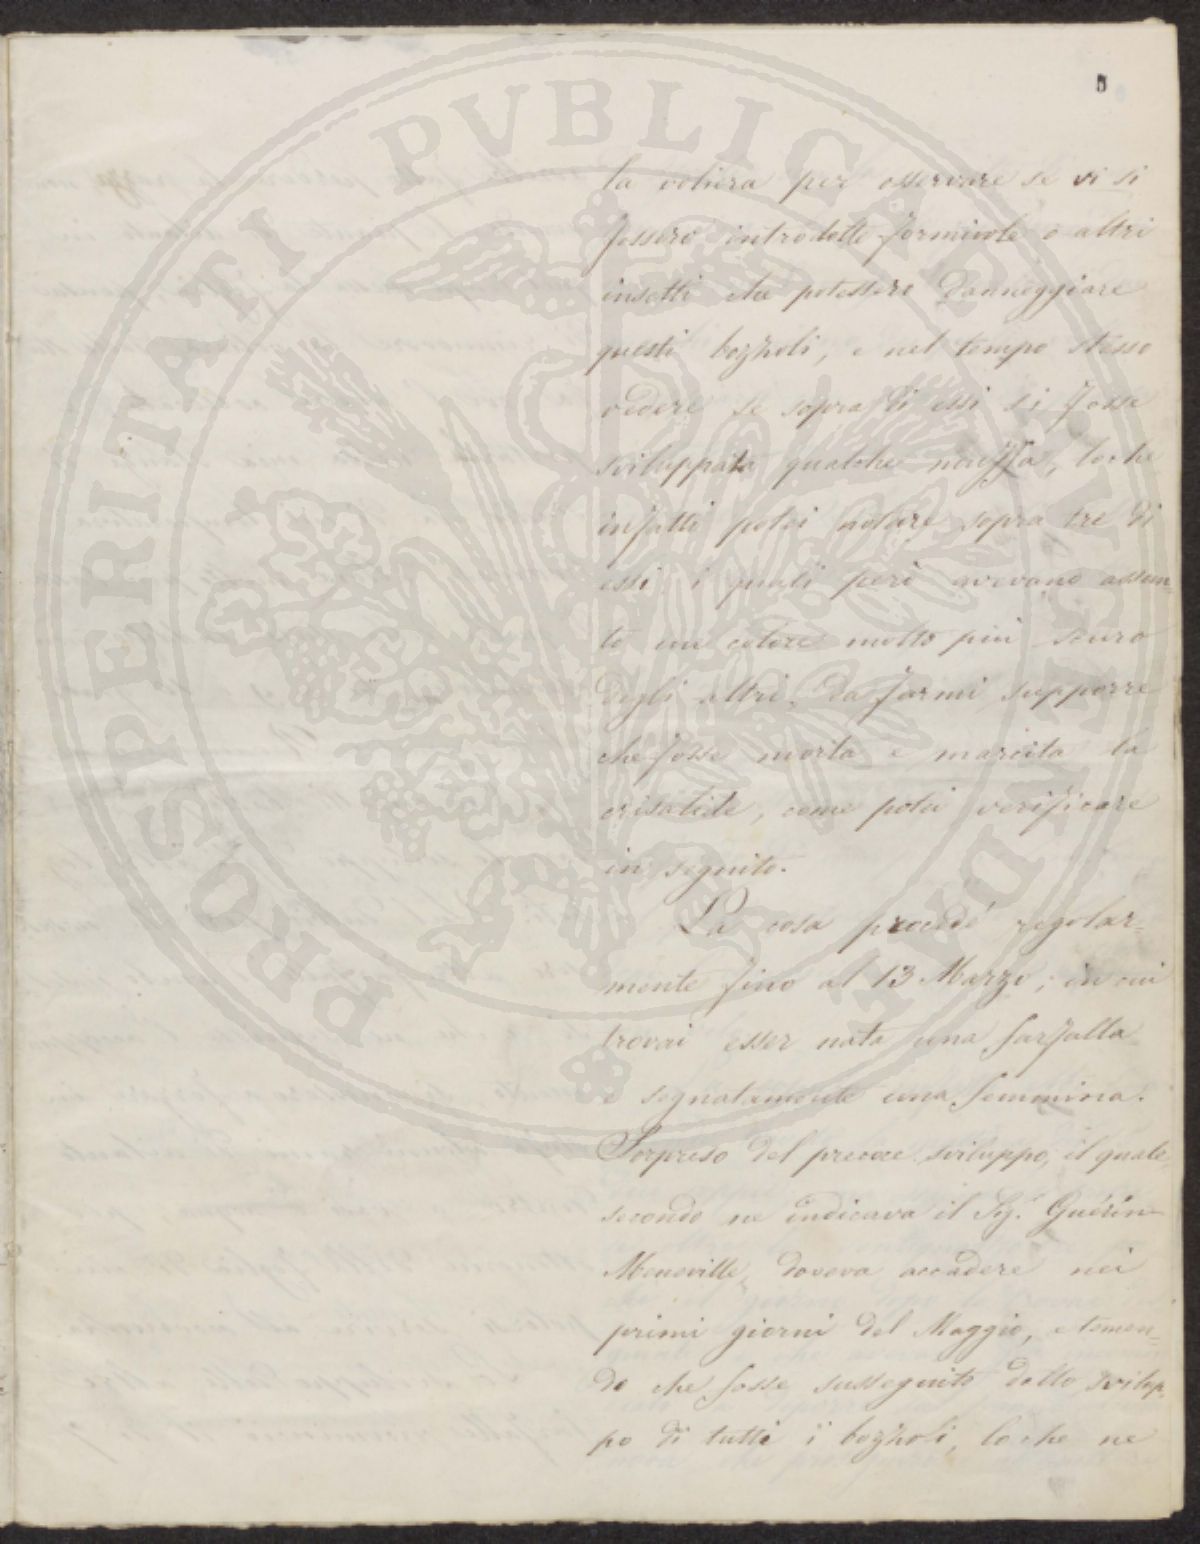 PROSPERITATI PVBLICAE AVGENDAE
5
la voliera per osservare se vi si
fossero introdotte formicole o altri
insetti che potessero danneggiare
questi bozzoli, e nel tempo stesso
vedere se sopra di essi si fosse
sviluppata qualche muffa, loche
infatti potei notare sopra tre di
essi i quali però avevano assun=
to un colore molto più scuro
degli altri, da farmi supporre
che fosse morta e marcita la
crisalide, come potei verificare
in seguito.
La cosa procedé regolar=
mente fino al 13 Marzo; in cui
trovai esser nata una farfalla
e segnatamente una femmina.
Sorpreso del precoce sviluppo, il quale,
secondo ne indicava il Sig.r Guérin-
Meneville, doveva accadere nei
primi giorni del Maggio, e temen=
do che fosse susseguito dallo svilup=
po di tutti i bozzoli, loche ne